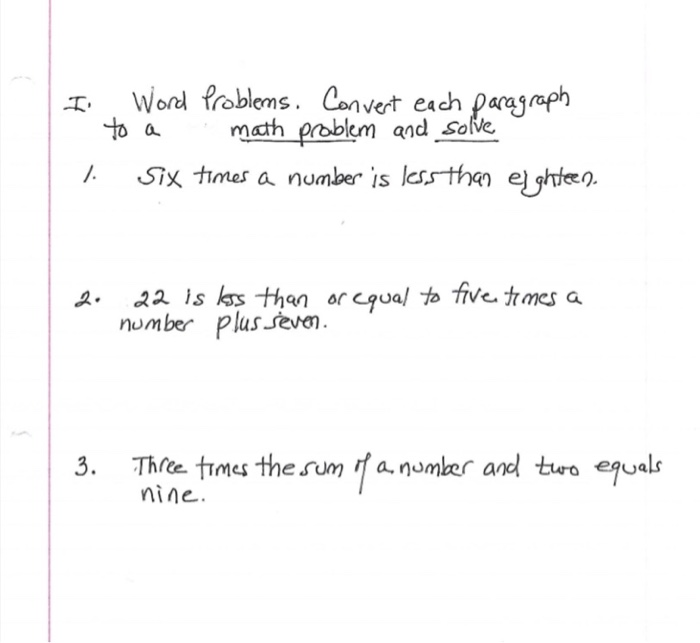 I. Word Problems. Convert each paragraph
to a math problem and solve
1. Six times a number is less than eighteen.
2. 22 is less than or equal to five times a
number plus seven.
3. Three times the sum of a number and two equals
nine.